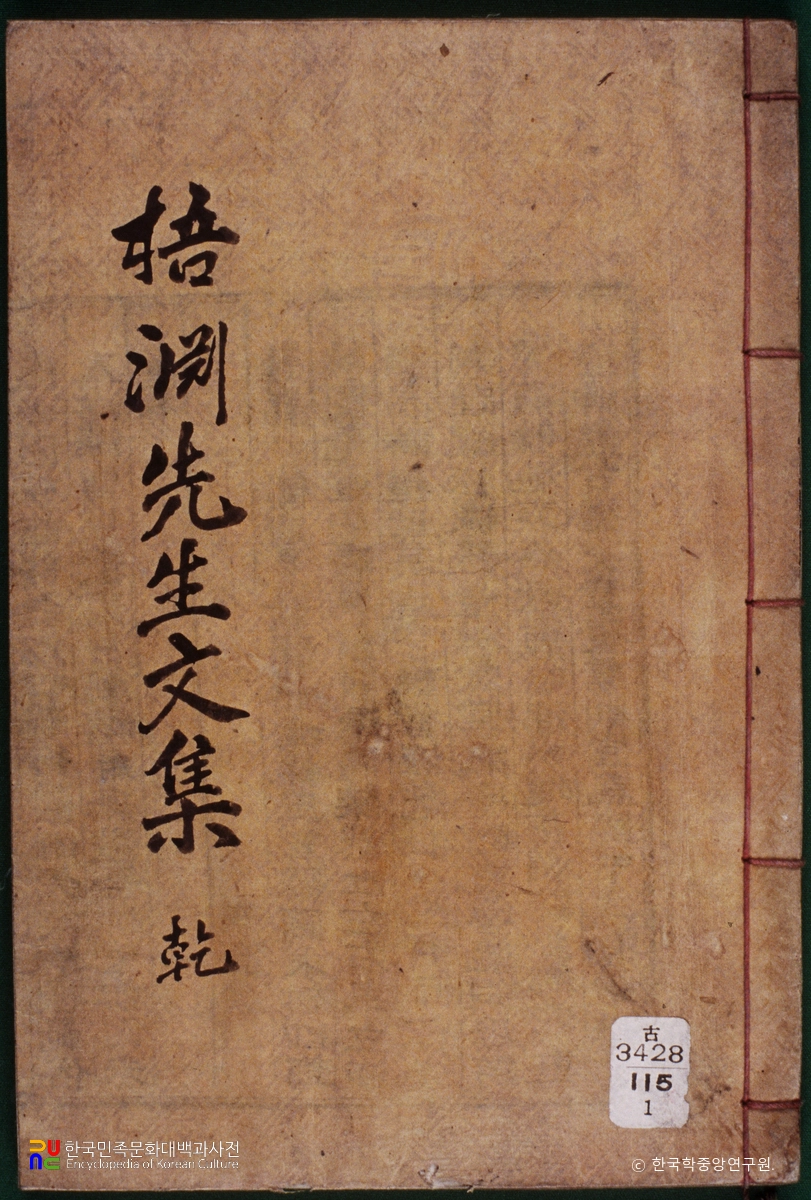 梧淵先生文集 乾
古
3428
115
1
한국민족문화대백과사전
Encyclopedia of Korean Culture
© 한국학중앙연구원.